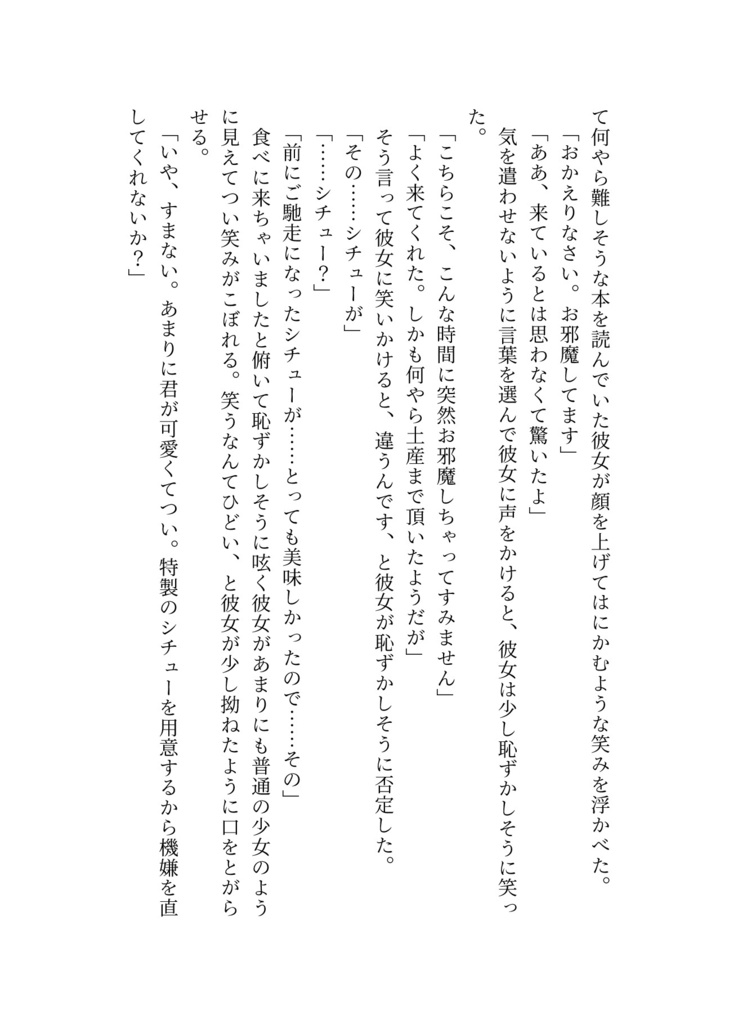 て何やら難しそうな本を読んでいた彼女が顔を上げてはにかむような笑みを浮かべた。
「おかえりなさい。お邪魔してます」
「ああ、来ているとは思わなくて驚いたよ」
気を遣わせないように言葉を選んで彼女に声をかけると、彼女は少し恥ずかしそうに笑っ
た。
「こちらこそ、こんな時間に突然お邪魔しちゃってすみません」
「よく来てくれた。しかも何やら土産まで頂いたようだが」
そう言って彼女に笑いかけると、違うんです、と彼女が恥ずかしそうに否定した。
「その……シチューが」
「……シチュー？」
「前にご馳走になったシチューが……とっても美味しかったので……その」
食べに来ちゃいましたと俯いて恥ずかしそうに呟く彼女があまりにも普通の少女のよう
に見えてつい笑みがこぼれる。笑うなんてひどい、と彼女が少し拗ねたように口をとがら
せる。
「いや、すまない。あまりに君が可愛くてつい。特製のシチューを用意するから機嫌を直
してくれないか？」